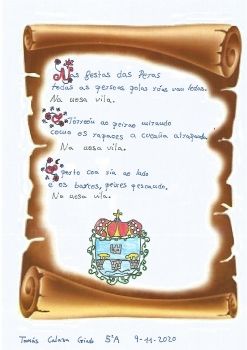 Nas festas das Peras
todas as persoas polas rúas van todas.
Na nosa vila.
Torreón ao peirao mirando
como os rapaces a cucaña atrapando
Na nosa vila.
E preto coa ría ao lado
e os barcos, peixes pescando.
Na nosa vila.
Tomás 5ºA 9-11-2020